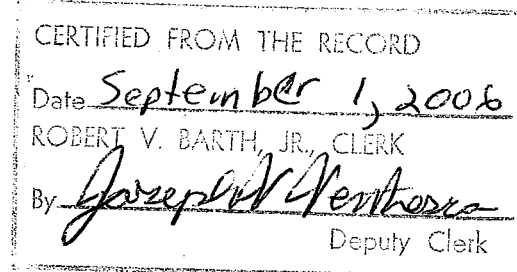 CERTIFIED FROM THE RECORD
Date September 1, 2006
ROBERT V. BARTH, JR., CLERK
By Joseph
Deputy Clerk